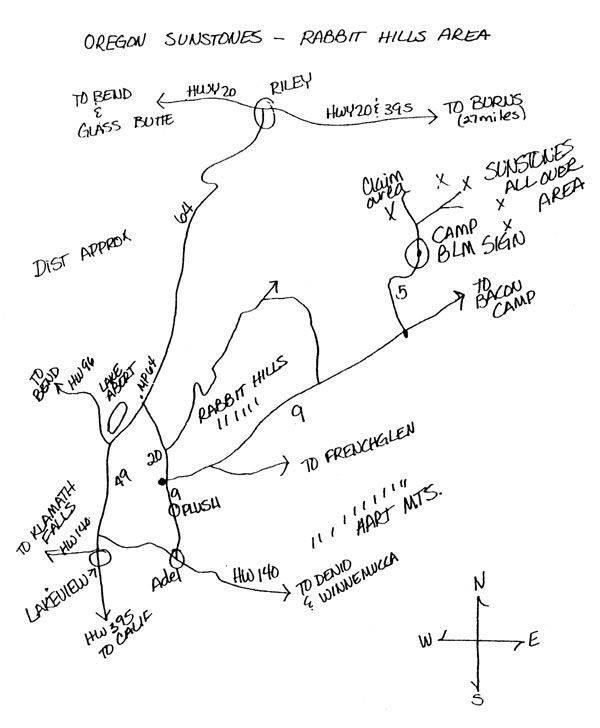 OREGON SUNSTONES - RABBIT HILLS AREA
TO BEND
&
GLASS BUTTE
HWY 20
RILEY
HWY 20 & 395
TO BURNS
(27 miles)
Claim
area
X
X X
SUNSTONES
ALL OVER
X
AREA
X
CAMP
BLM SIGN
64
DIST APPROX
5
TO
BACON
CAMP
TO
BEND
HW 96
LAKE
ABERT
MP64
RABBIT HILLS
9
20
49
TO FRENCHGLEN
9
PLUSH
HART MTS.
TO KLAMATH
FALLS
HW 140
LAKEVIEW
Adel
HW 140
TO DENIO
& WINNEMUCCA
HW 395
TO CALIF
N
W E
S